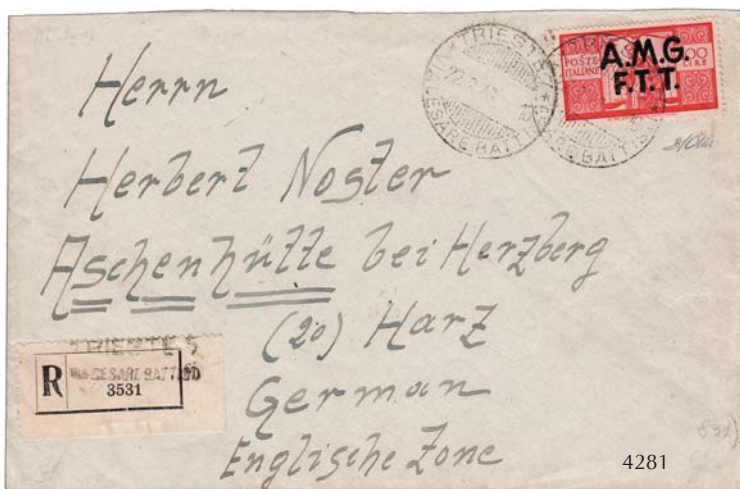 TRIESTE
CESARE BATTISTI
POSTE
ITALIANE
LIRE
A.M.G.
F.T.T.
Herrn
Herbert Noster
Aschenhütte bei Herzberg
(20) Harz
German
Englische Zone
TRIESTE 5
R
CESARE BATTISTI
3531
4281